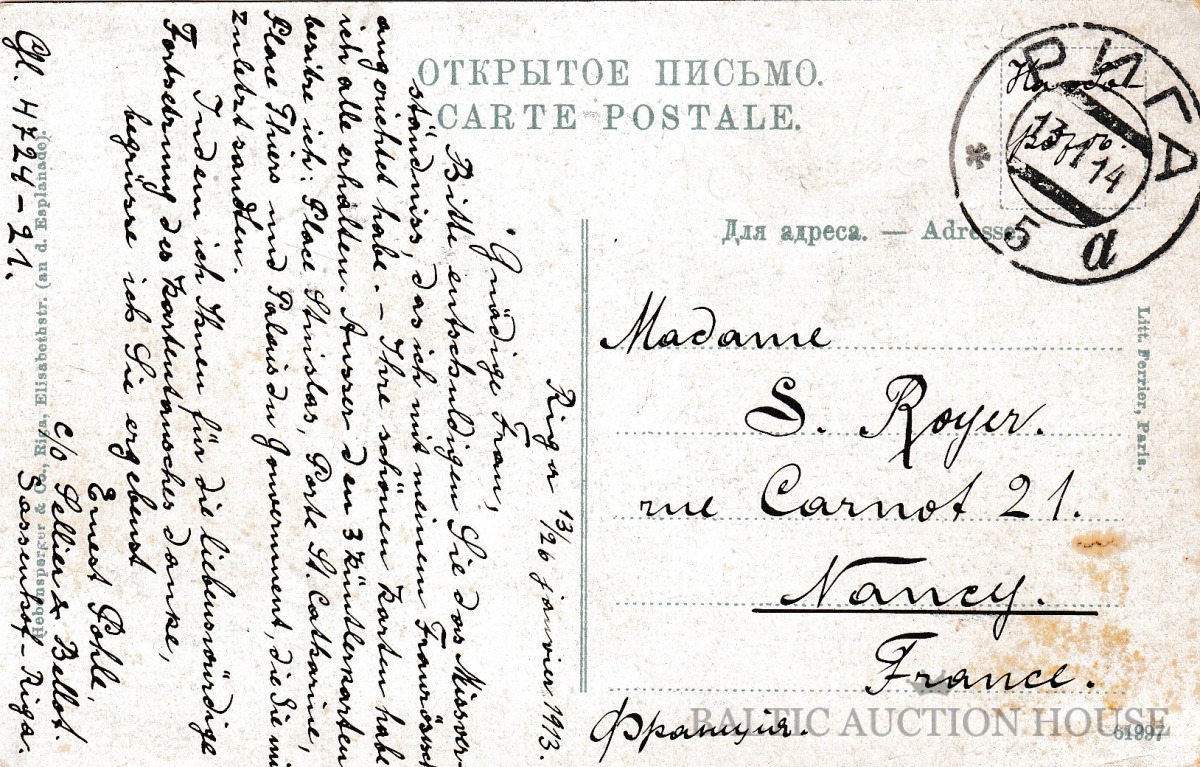 ОТКРЫТОЕ ПИСЬМО.
CARTE POSTALE.
Для адреса. — Adresse.
РИГА
13 1 14
5 a
Madame
S. Royer.
rue Carnot 21.
Nancy.
France.
Франція.
Riga 13/26 janvier 1913.
Gnädige Frau,
Bitte entschuldigen Sie das Missver-
ständniss, das ich mit meinem Französisch
angerichtet habe. – Ihre schönen Karten habe
ich alle erhalten. Ausser den 3 Künstlerkarten
besitze ich: Place Stanislas, Porte St. Catharine,
Place Thiers und Palais du Gouvernment, die Sie mir
zuletzt sandten.
Indem ich Ihnen für die liebenswürdige
Fortsetzung des Kartentausches danke,
begrüsse ich Sie ergebenst
Ernest Pohlé.
c/o Sellier & Bellot.
Sassenhof-Riga.
Cgl. 4724-21.
Hebensperger & Co., Riga, Elisabethstr. (an d. Esplanade).
Litt. Ferrier, Paris.
61997
BALTIC AUCTION HOUSE